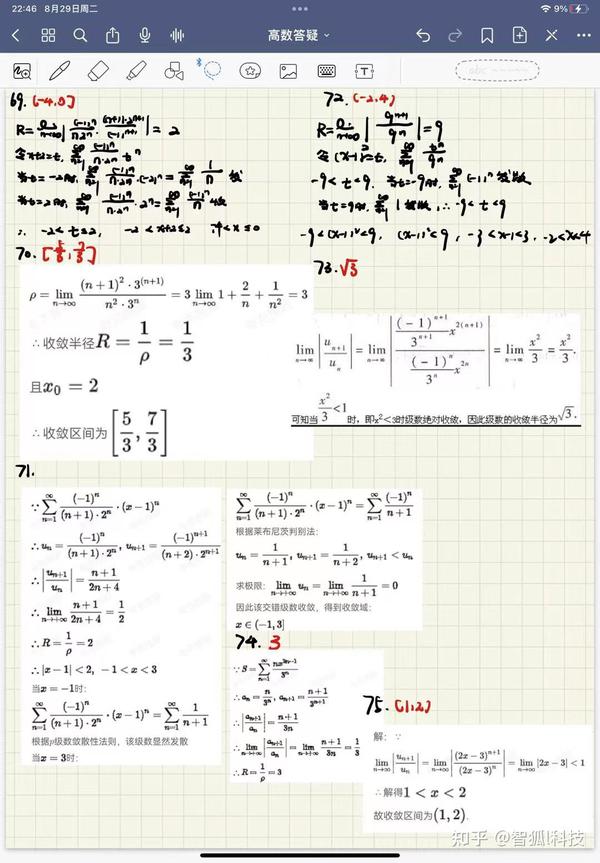 22:46 8月29日周二
9%
高数答疑
69. (-4,0]
R=lim n→∞ |(-1)^n/(n·2^n) · ((n+1)·2^(n+1))/(-1)^(n+1)| = 2
令x+2=t, ∑ n=1 ∞ (-1)^n/(n·2^n) t^n
当t=-2时, ∑ n=1 ∞ (-1)^n/(n·2^n)·(-2)^n = ∑ n=1 ∞ 1/n 发散
当t=2时, ∑ n=1 ∞ (-1)^n/(n·2^n)·2^n = ∑ n=1 ∞ (-1)^n/n 收敛
∴ -2<t≤2, -2<x+2≤2 ∴ -4<x≤0
72. (-2,4)
R=lim n→∞ |9^(n+1)/9^n| = 9
令(x-1)²=t, ∑ n=1 ∞ t^n/9^n
-9<t<9, 当t=-9时, ∑ n=1 ∞ (-1)^n 发散
当t=9时, ∑ n=1 ∞ 1 发散, ∴ -9<t<9
-9<(x-1)²<9, (x-1)²<9, -3<x-1<3, -2<x<4
70. [5/3, 7/3]
ρ = lim n→∞ ((n+1)²·3^(n+1))/(n²·3^n) = 3 lim n→∞ 1 + 2/n + 1/n² = 3
∴收敛半径R = 1/ρ = 1/3
且x₀ = 2
∴收敛区间为[5/3, 7/3]
73. √3
lim n→∞ |u_(n+1)/u_n| = lim n→∞ |((-1)^(n+1)/3^(n+1) x^(2(n+1)))/((-1)^n/3^n x^(2n))| = lim n→∞ x²/3 = x²/3.
可知当x²/3<1时，即x²<3时级数绝对收敛，因此级数的收敛半径为√3.
71.
∵∑ n=1 ∞ (-1)^n/((n+1)·2^n)·(x-1)^n
∴u_n = (-1)^n/((n+1)·2^n), u_(n+1) = (-1)^(n+1)/((n+2)·2^(n+1))
∴|u_(n+1)/u_n| = (n+1)/(2n+4)
∴ lim n→+∞ (n+1)/(2n+4) = 1/2
∴R = 1/ρ = 2
∴|x-1| < 2, -1 < x < 3
当x = -1时:
∑ n=1 ∞ (-1)^n/((n+1)·2^n)·(x-1)^n = ∑ n=1 ∞ 1/(n+1)
根据p级数敛散性法则，该级数显然发散
当x = 3时:
∑ n=1 ∞ (-1)^n/((n+1)·2^n)·(x-1)^n = ∑ n=1 ∞ (-1)^n/(n+1)
根据莱布尼茨判别法:
u_n = 1/(n+1), u_(n+1) = 1/(n+2), u_(n+1) < u_n
求极限: lim n→+∞ u_n = lim n→+∞ 1/(n+1) = 0
因此该交错级数收敛，得到收敛域:
x ∈ (-1, 3]
74. 3
∵S = ∑ n=1 ∞ nx^(2n-1)/3^n
∴a_n = n/3^n, a_(n+1) = (n+1)/3^(n+1)
∴|a_(n+1)/a_n| = (n+1)/3n
∴ lim n→+∞ |a_(n+1)/a_n| = lim n→+∞ (n+1)/3n = 1/3
∴R = 1/ρ = 3
75. (1,2)
解：
lim n→∞ |u_(n+1)/u_n| = lim n→∞ |(2x-3)^(n+1)/(2x-3)^n| = lim n→∞ |2x-3| < 1
∴解得1 < x < 2
故收敛区间为(1, 2).
知乎 @智狐l科技